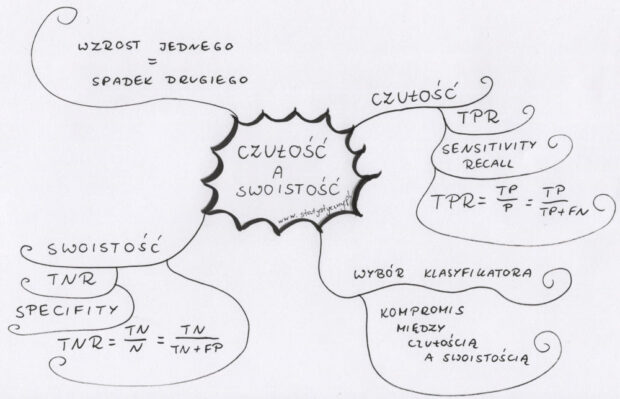 WZROST JEDNEGO
=
SPADEK DRUGIEGO
CZUŁOŚĆ
A
SWOISTOŚĆ
www.statystyczny.pl
CZUŁOŚĆ
TPR
SENSITIVITY
RECALL
TPR = TP/P = TP/TP+FN
SWOISTOŚĆ
TNR
SPECIFITY
TNR = TN/N = TN/TN+FP
WYBÓR KLASYFIKATORA
KOMPROMIS
MIĘDZY
CZUŁOŚCIĄ
A SWOISTOŚCIĄ